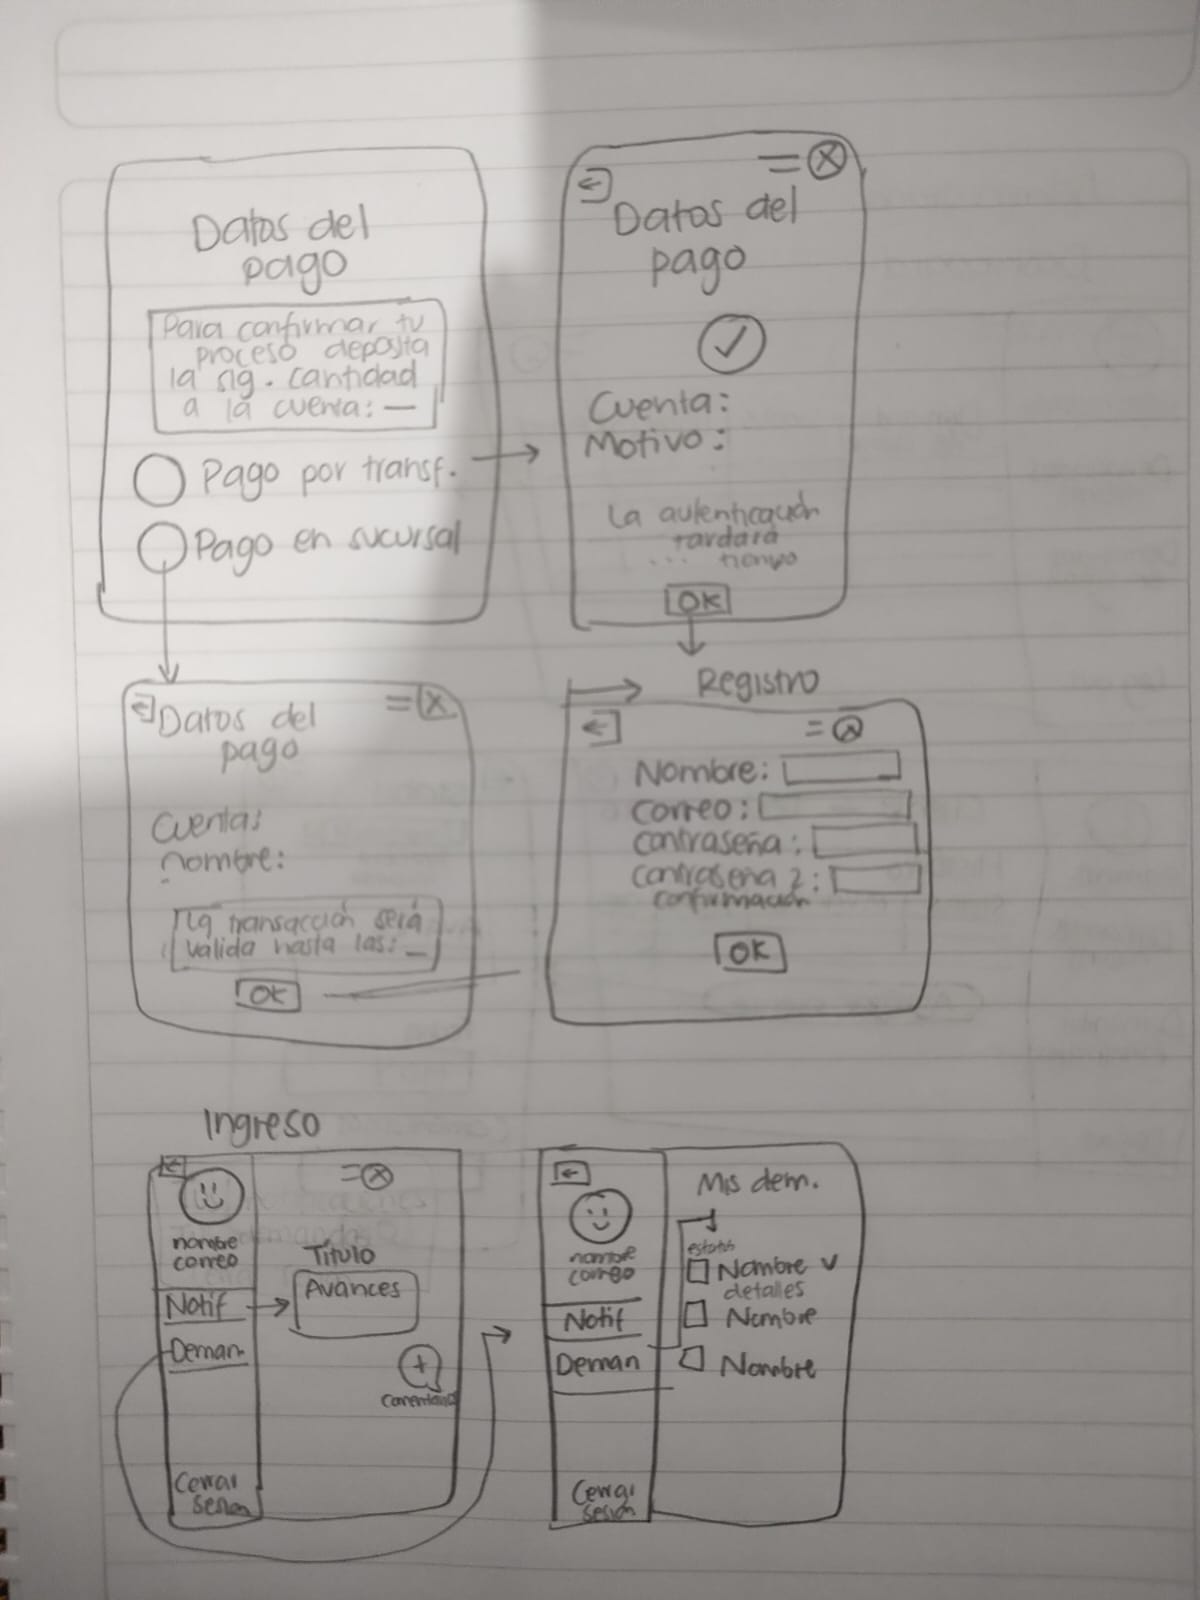 Datos del
pago
Para confirmar tu
proceso deposita
la sig. cantidad
a la cuenta: —
Pago por transf.
Pago en sucursal
Datos del
pago
Cuenta:
Motivo:
La autenticación
tardará
... tiempo
OK
Datos del
pago
Cuenta:
nombre:
La transacción será
válida hasta las: _
OK
Registro
Nombre:
Correo:
contraseña:
contraseña 2:
confirmación
OK
Ingreso
nombre
correo
Notif
Deman
Cerrar
sesion
Título
Avances
Comentario
nombre
correo
Notif
Deman
Cerrar
sesión
Mis dem.
estatus
Nombre v
detalles
Nombre
Nombre